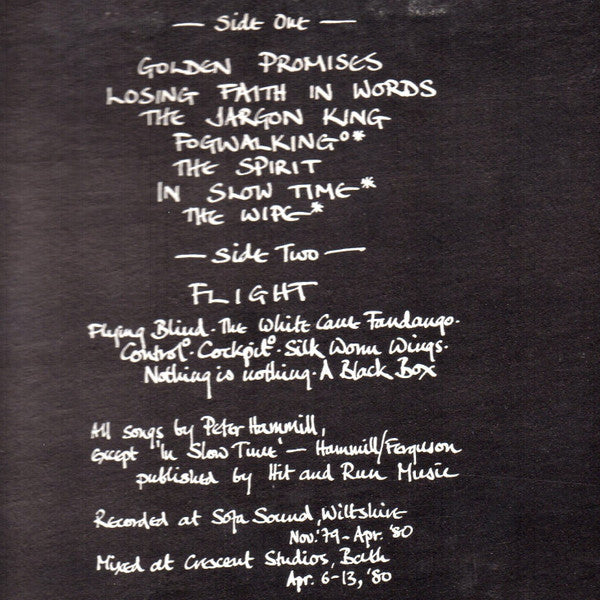 — Side One —
GOLDEN PROMISES
LOSING FAITH IN WORDS
THE JARGON KING
FOGWALKING°*
THE SPIRIT
IN SLOW TIME*
THE WIPE*
— Side Two —
FLIGHT
Flying Blind · The White Cane Fandango ·
Control° · Cockpit° · Silk Worm Wings ·
Nothing is nothing · A Black Box
All songs by Peter Hammill,
except 'In Slow Time' — Hammill/Ferguson
published by Hit and Run Music
Recorded at Sofa Sound, Wiltshire
Nov. '79 - Apr. '80
Mixed at Crescent Studios, Bath
Apr. 6-13, '80